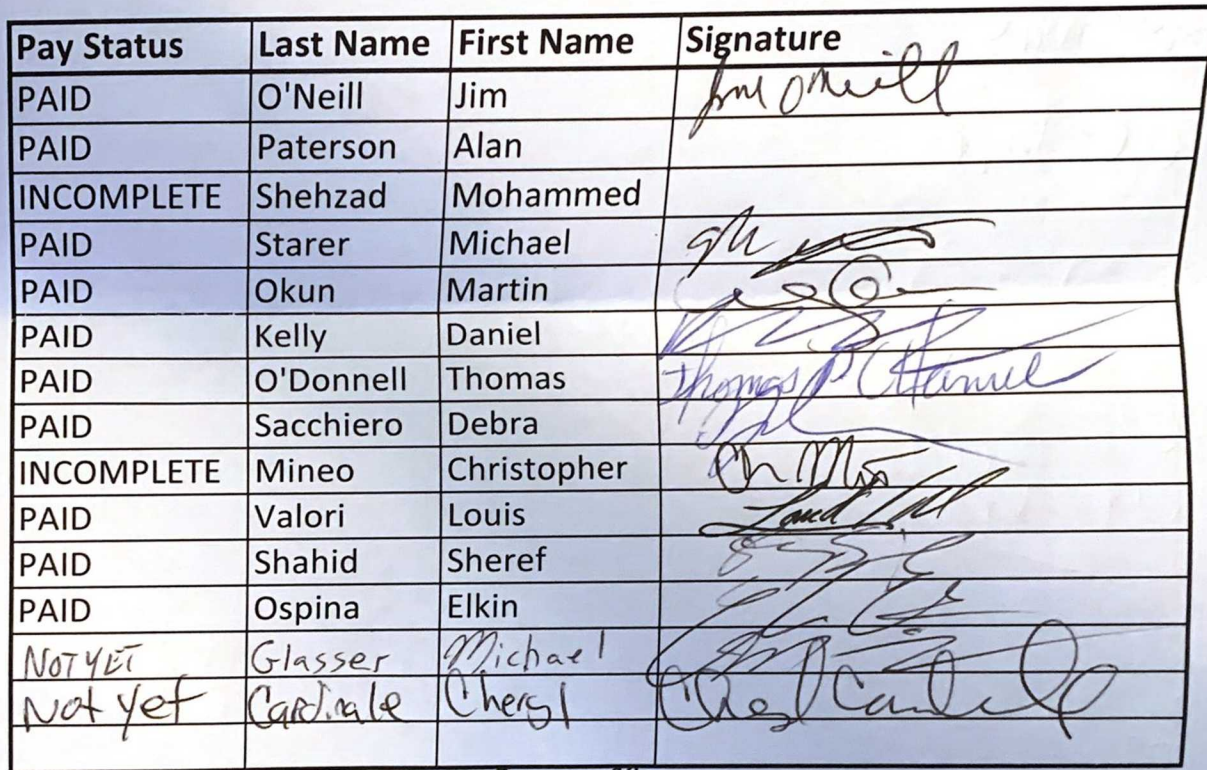 Pay Status Last Name First Name Signature
PAID O'Neill Jim Jim O'Neill
PAID Paterson Alan
INCOMPLETE Shehzad Mohammed
PAID Starer Michael
PAID Okun Martin
PAID Kelly Daniel
PAID O'Donnell Thomas Thomas P
PAID Sacchiero Debra
INCOMPLETE Mineo Christopher
PAID Valori Louis
PAID Shahid Sheref
PAID Ospina Elkin
NOT YET Glasser Michael
Not yet Cardinale Cheryl Cheryl Cardinale